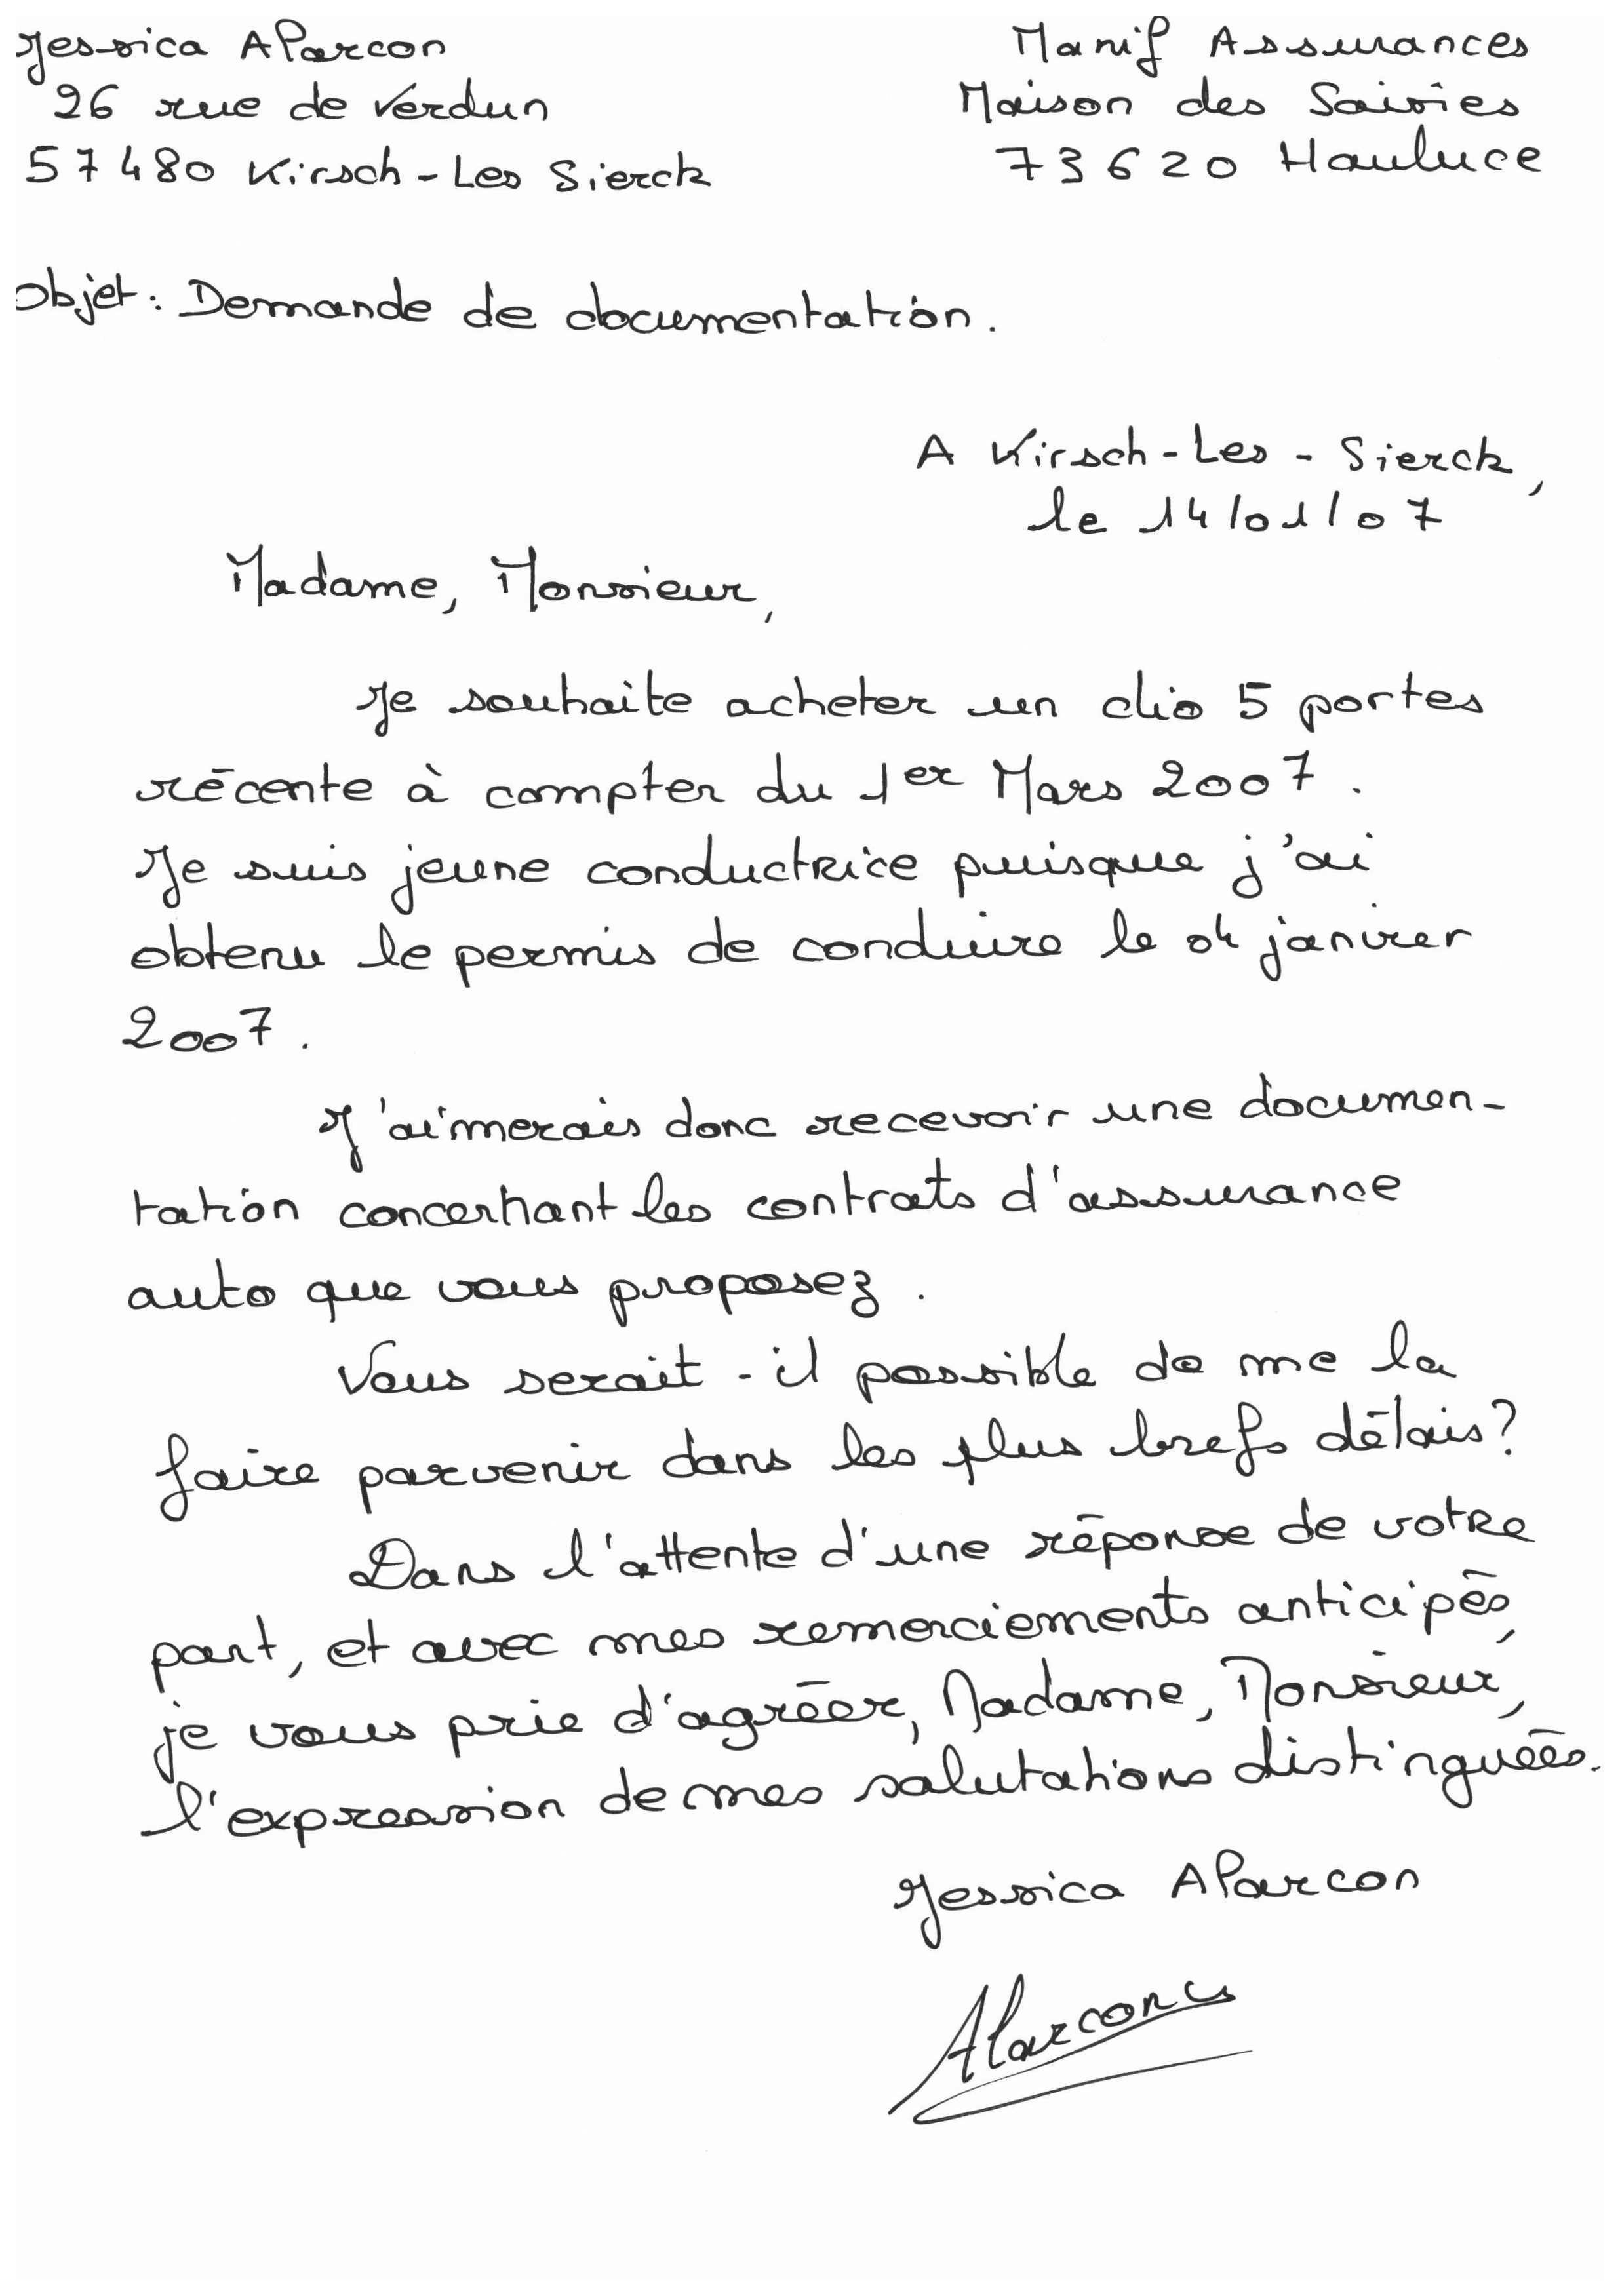 Jessica Alarcon
26 rue de Verdun
57480 Kirsch-Les Sierck
Manif Assurances
Maison des Saisies
73620 Hauluce
Objet: Demande de documentation.
A Kirsch-Les-Sierck,
le 14/01/07
Madame, Monsieur,
Je souhaite acheter un clio 5 portes
récente à compter du 1er Mars 2007.
Je suis jeune conductrice puisque j'ai
obtenu le permis de conduire le 04 janvier
2007.
J'aimerais donc recevoir une documen-
tation concernant les contrats d'assurance
auto que vous proposez.
Vous serait-il possible de me la
faire parvenir dans les plus brefs délais?
Dans l'attente d'une réponse de votre
part, et avec mes remerciements anticipés,
je vous prie d'agréer, Madame, Monsieur,
l'expression de mes salutations distinguées.
Jessica Alarcon
Alarcon